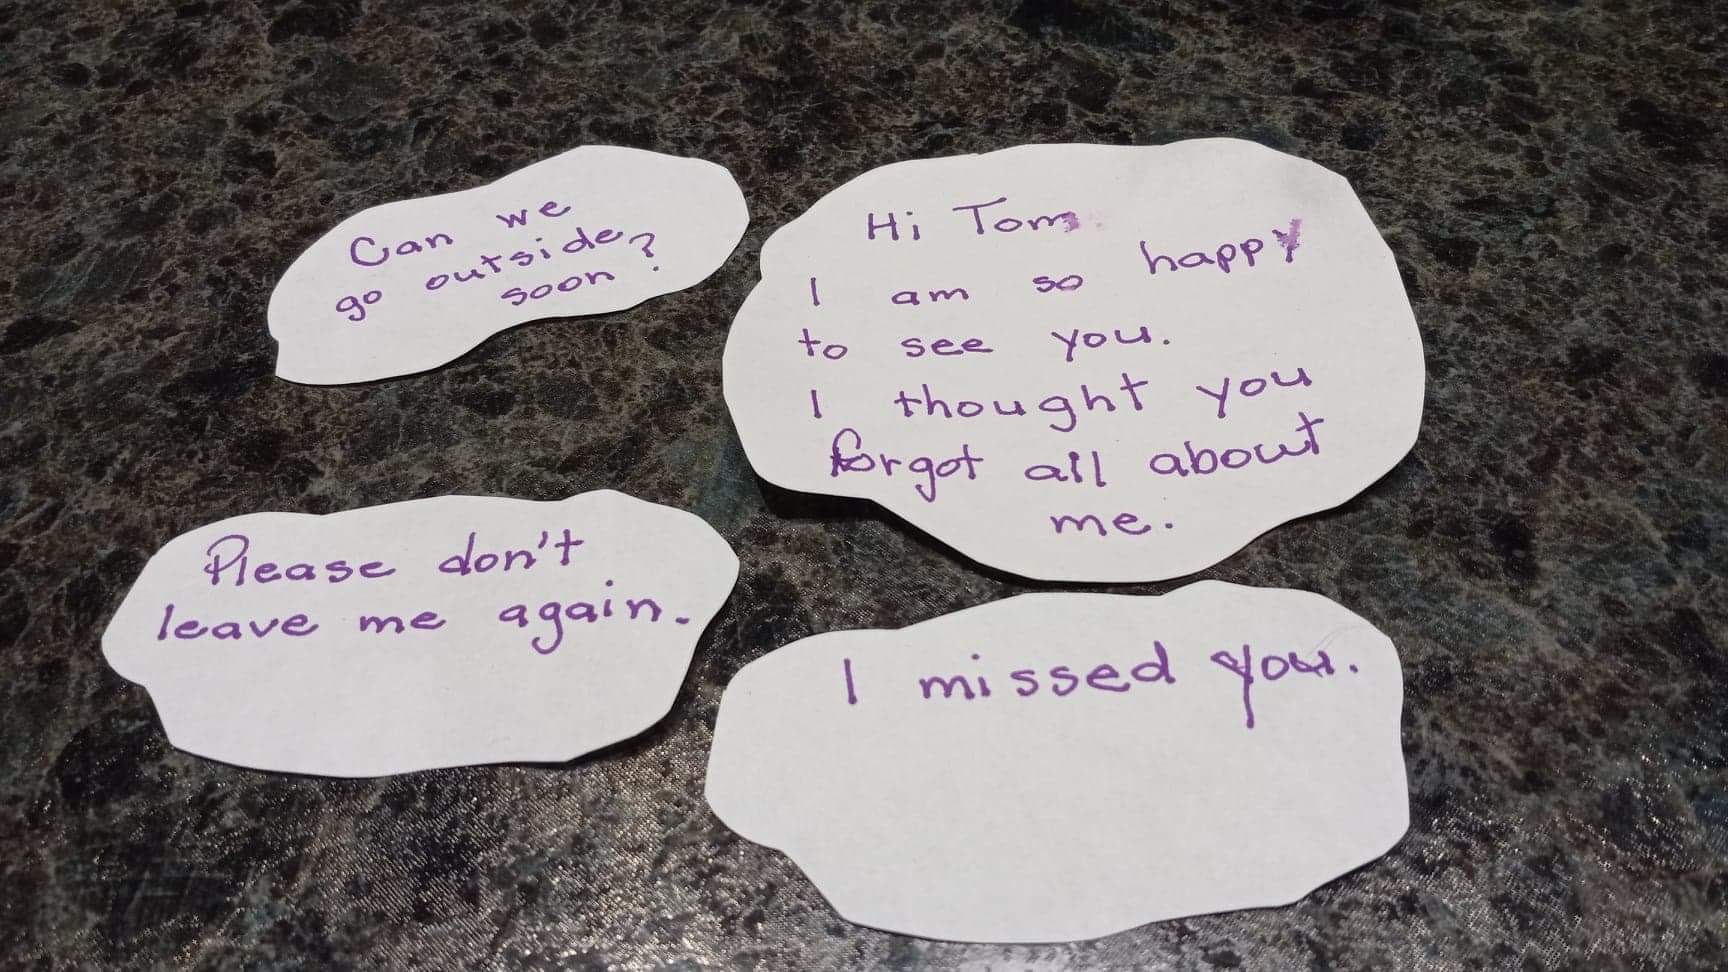 Can we
go outside
soon?
Hi Tom
I am so happy
to see you.
I thought you
forgot all about
me.
Please don't
leave me again.
I missed you.